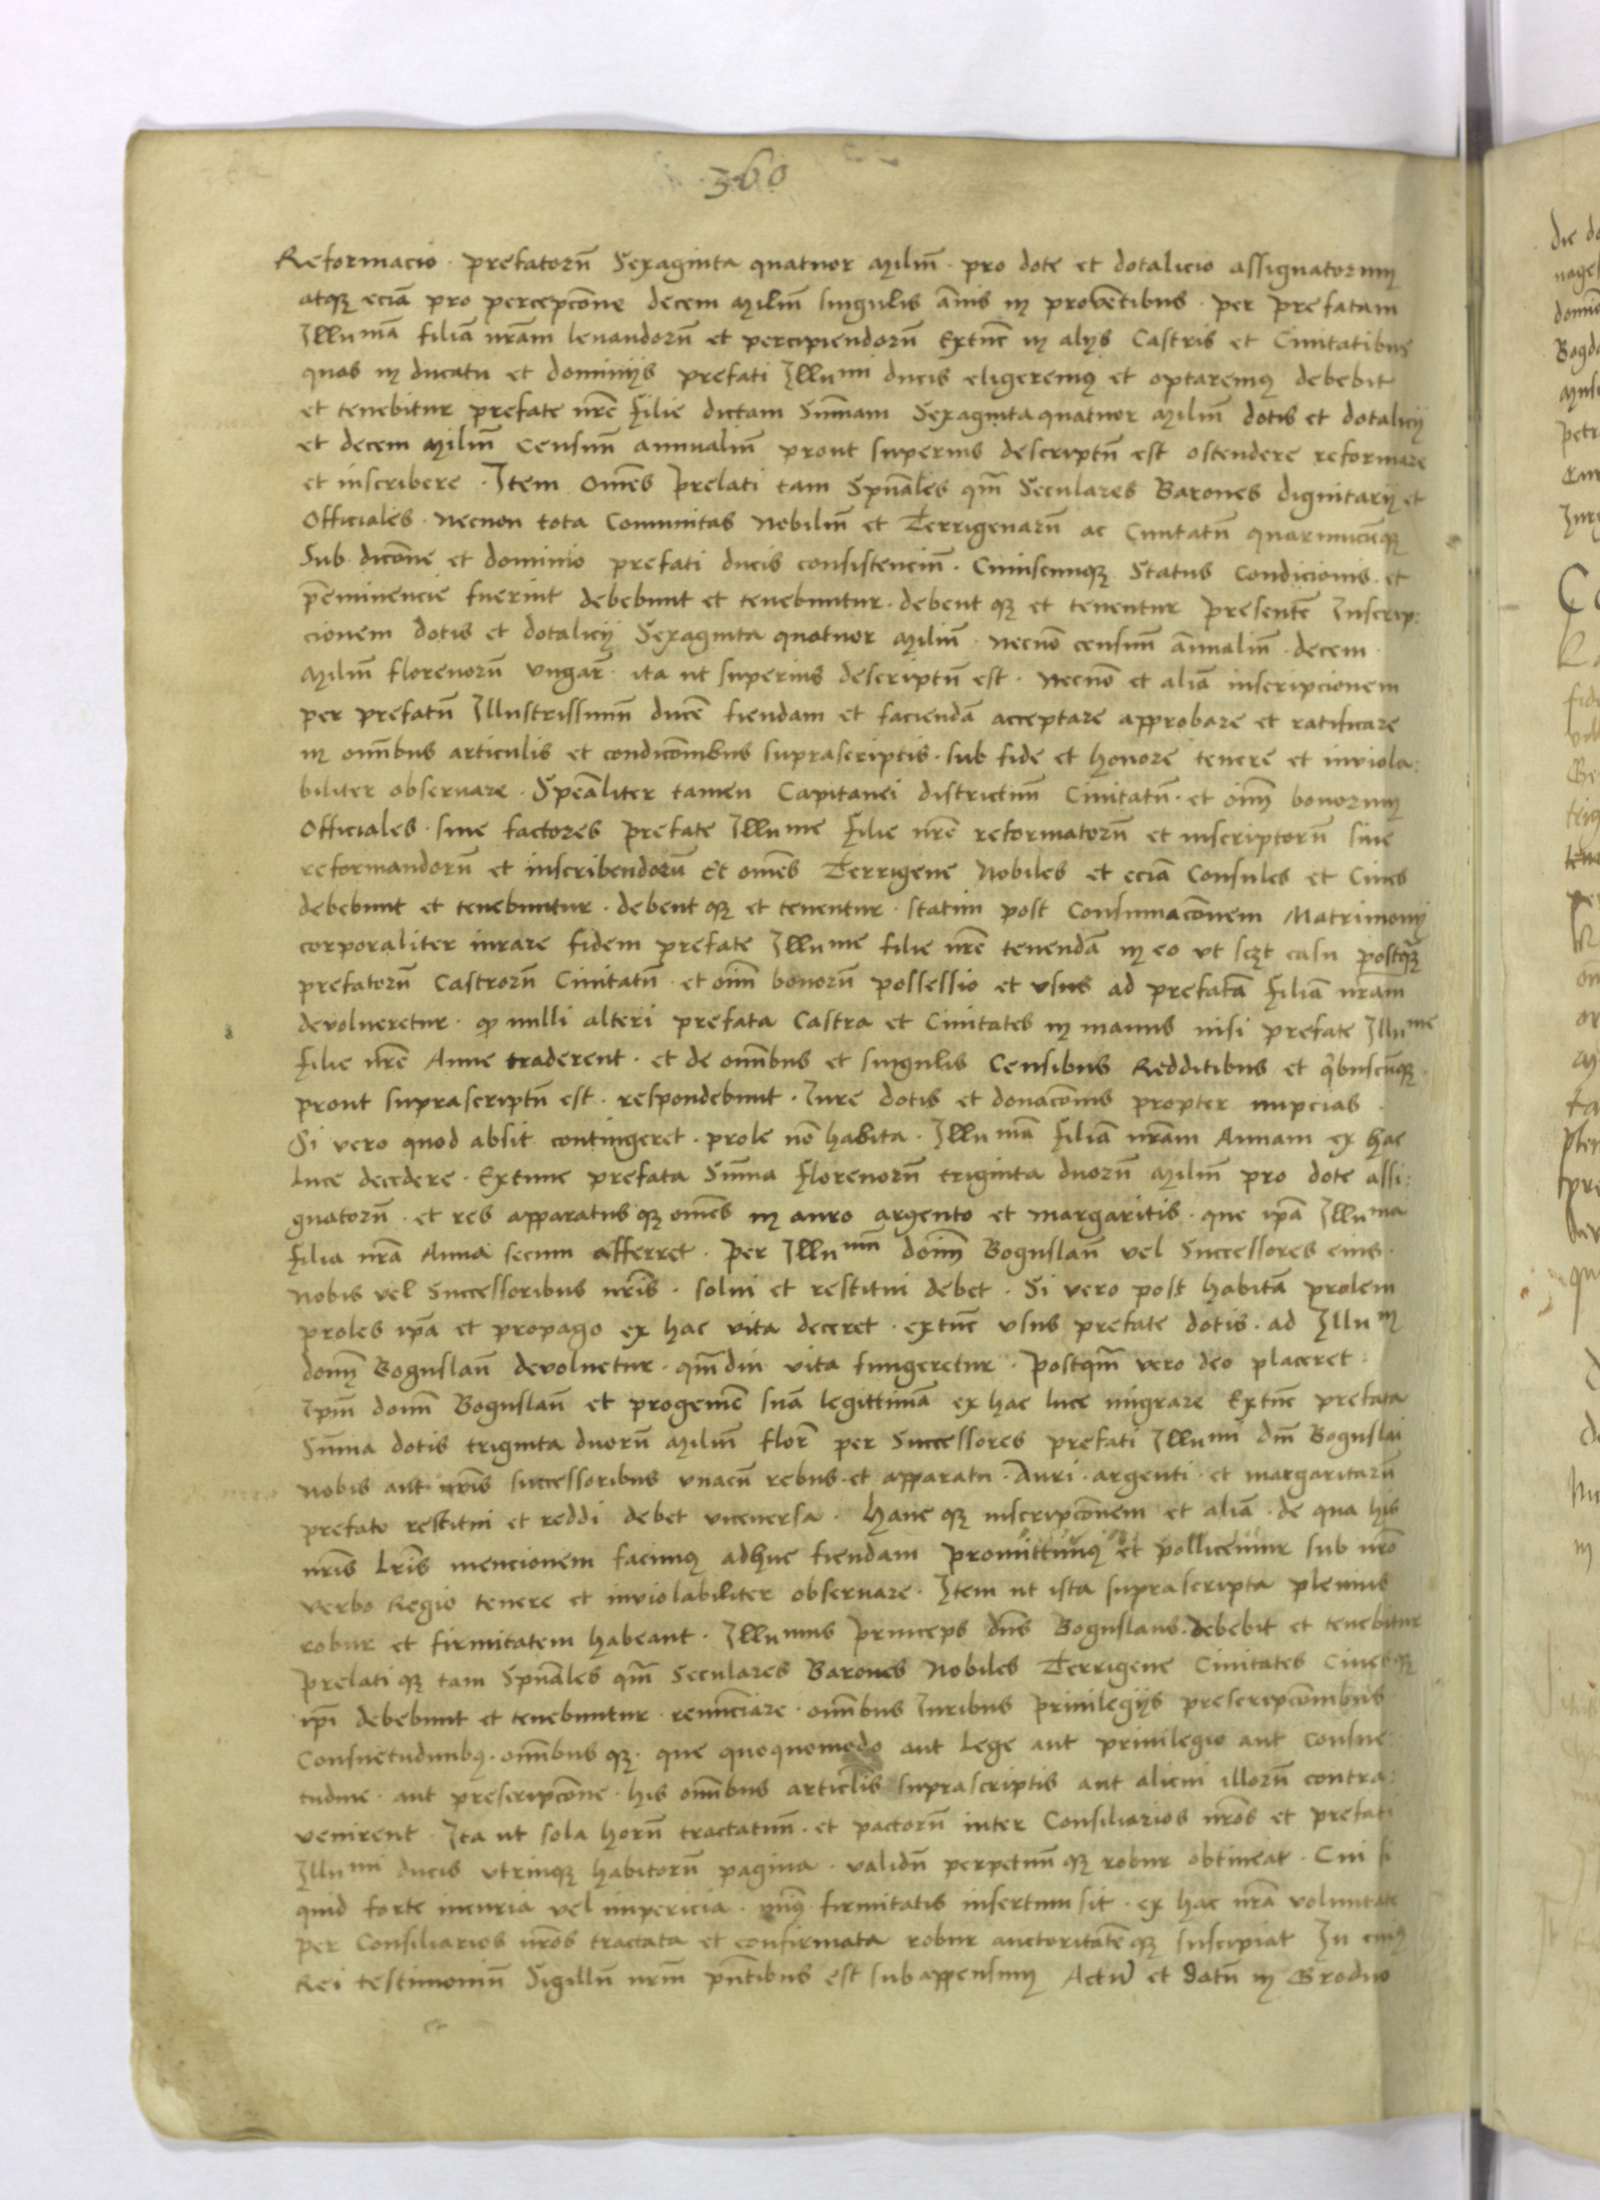 360
Reformacio · prefatorū Sexaginta quatuor Miliū · pro dote et dotalicio assignatorum
atqȝ eciā pro percepcōne decem Miliū singulis ānis in proventibus · per prefatam
Illumā filiā nrām levandorū et percipiendorū Extūc in alijs Castris et Civitatibus
quas in ducatu et dominijs prefati Illumi ducis eligeremus et optaremus debebit
et tenebitur prefate nrē filie dictam Sūmam Sexaginta quatuor Miliū dotis et dotalicij
et decem Miliū Censuū annualiū prout superius descriptū est ostendere reformare
et inscribere · Item omēs Prelati tam Spūales qm̄ Seculares Barones dignitarij et
Officiales · necnon tota Comunitas Nobiliū et Terrigenarū ac Civitatū quarumcūqȝ
Sub dicōne et dominio prefati ducis consistenciū · Cuiuscunqȝ Status Condicionis et
p̄eminencie fuerint debebunt et tenebuntur · debent qȝ et tenentur presentē Inscrip:
cionem dotis et dotalicij Sexaginta quatuor Miliū · necnō censuū ānualiū · decem
Miliū florenorū ungar̄ · ita ut superius descriptū est · necnō et aliā inscripcionem
per prefatū Illustrissimū ducē fiendam et faciendā acceptare approbare et ratificare
in omībus articulis et condicōnibus suprascriptis · sub fide et honore tenere et inviola:
biliter observare · Speāliter tamen Capitanei districtuū Civitatū · et oīm bonorum
Officiales · sive factores prefate Illume filie nrē reformatorū et inscriptorū sive
reformandorū et inscribendorū Et omēs Terrigene Nobiles et eciā Consules et Cives
debebunt et tenebuntur · debent qȝ et tenentur · statim post Consumacōnem Matrimonij
corporaliter iurare fidem prefate Illume filie nrē tenendā in eo ut sczt casu postqȝ
prefatorū Castrorū Civitatū · et oīm bonorū possessio et usus ad prefatā filiā nrām
devolveretur · qd nulli alteri prefata Castra et Civitates in manus nisi prefate Illume
filie nrē Anne traderent · et de omībus et singulis Censibus Redditibus et qibuscūqȝ
prout suprascriptū est · respondebunt · Iure dotis et donacōnis propter nupcias
Si vero quod absit contingeret · prole nō habita · Illumā filiā nrām Annam ex hac
luce decedere · Extunc prefata Sūma florenorū triginta duorū Miliū pro dote assi:
gnatorū · et res apparatus qȝ omēs in auro argento et margaritis · que ipā Illuma
filia nrā Anna secum afferret · per Illumū domī Boguslaū vel Successores eius ·
nobis vel Successoribus nrīs · solvi et restitui debet · Si vero post habitā prolem
proles ipā et propago ex hac vita deceret · extūc usus prefate dotis · ad Illum
domī Boguslaū devolvetur · qm̄diu vita fungeretur · Postqm̄ vero deo placeret
Ipm̄ domī Boguslaū et progeniē suā legittimā ex hac luce migrare Extūc prefata
Sūma dotis triginta duorū Miliū flor̄ per Successores prefati Illumi dm̄ Boguslai
nobis aut nrīs successoribus unacū rebus et apparatu · Auri · argenti · et margaritarū
prefato restitui et reddi debet viceversa · Hanc qȝ inscripcōnem et aliā · de qua his
nrīs Lrīs mencionem facimus adhuc fiendam promittimus et pollicemur sub nrō
verbo Regio tenere et inviolabiliter observare · Item ut ista suprascripta plenius
robur et firmitatem habeant · Illumus princeps dn̄s Boguslaus debebit et tenebitur
Prelati qȝ tam Spūales qm̄ Seculares Barones Nobiles Terrigene Civitates Civesqȝ
ipī debebunt et tenebuntur · renūciare · omībus Iuribus privilegijs prescripcōnibus
Consuetudinibȝ · omībus qȝ · que quoquomodo aut lege aut privilegio aut Consue:
tudine · aut prescripcōne · his omībus articlīs suprascriptis aut alicui illorū contra:
venirent · Ita ut sola horū tractatuū · et pactorū inter Consiliarios nrōs et prefati
Illumi ducis utrinqȝ habitorū pagina · validū perpetuū qȝ robur obtineat · Cui si
quid forte incuria vel impericia · min9 firmitatis insertum sit · ex hac nrā voluntate
per Consiliarios nrōs tractata et confirmata robur auctoritatē qȝ suscipiat In cuius
Rei testimoniū Sigillū nrm̄ pn̄tibus est subappensum Actū et datū in Grodno
et